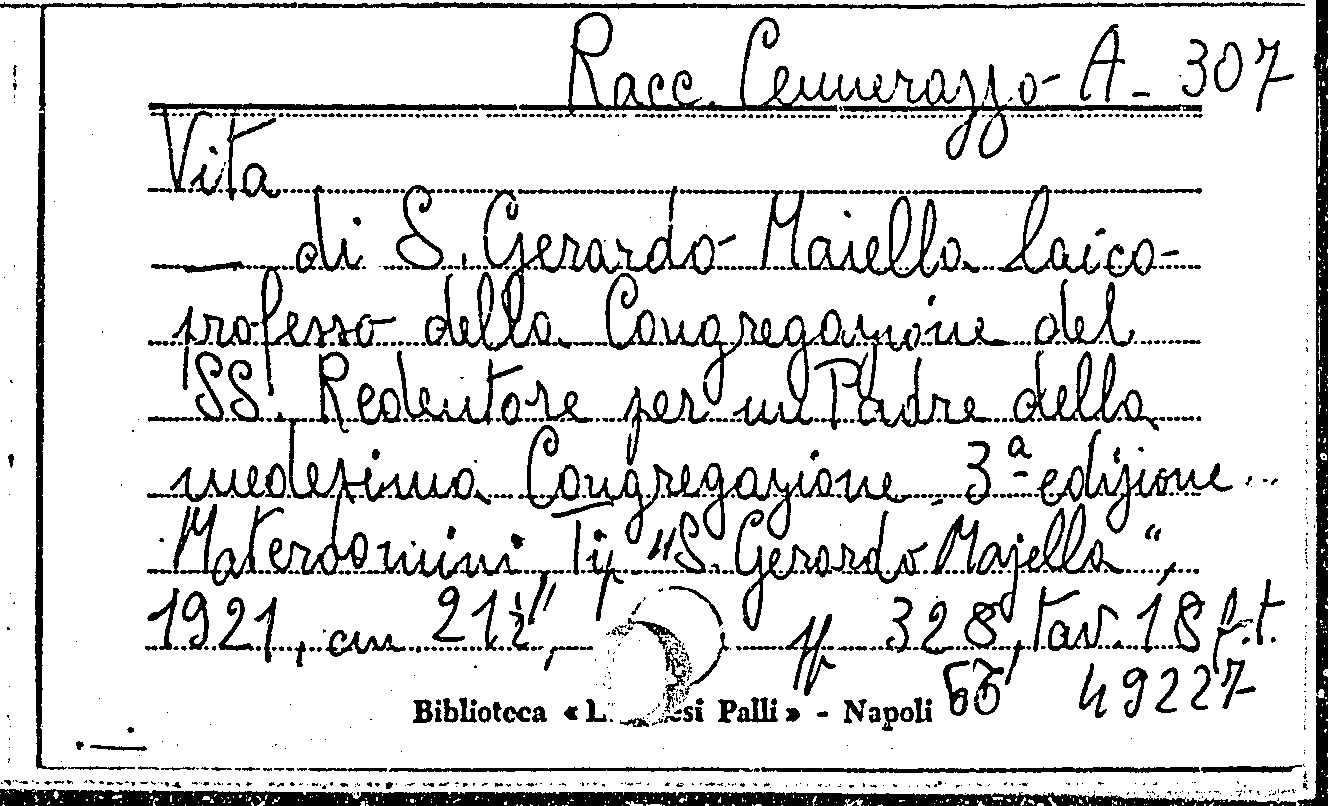 Racc. Cennerazzo A - 307
Vita
— di S. Gerardo Maiella laico
professo della Congregazione del
SS. Redentore per un Padre della
medesima Congregazione. 3ª edizione...
Materdomini, Tip. "S. Gerardo Majella",
1921, cm. 21½, pp. 328, tav. 18 f.t.
49227
Biblioteca « L. si Palli » - Napoli